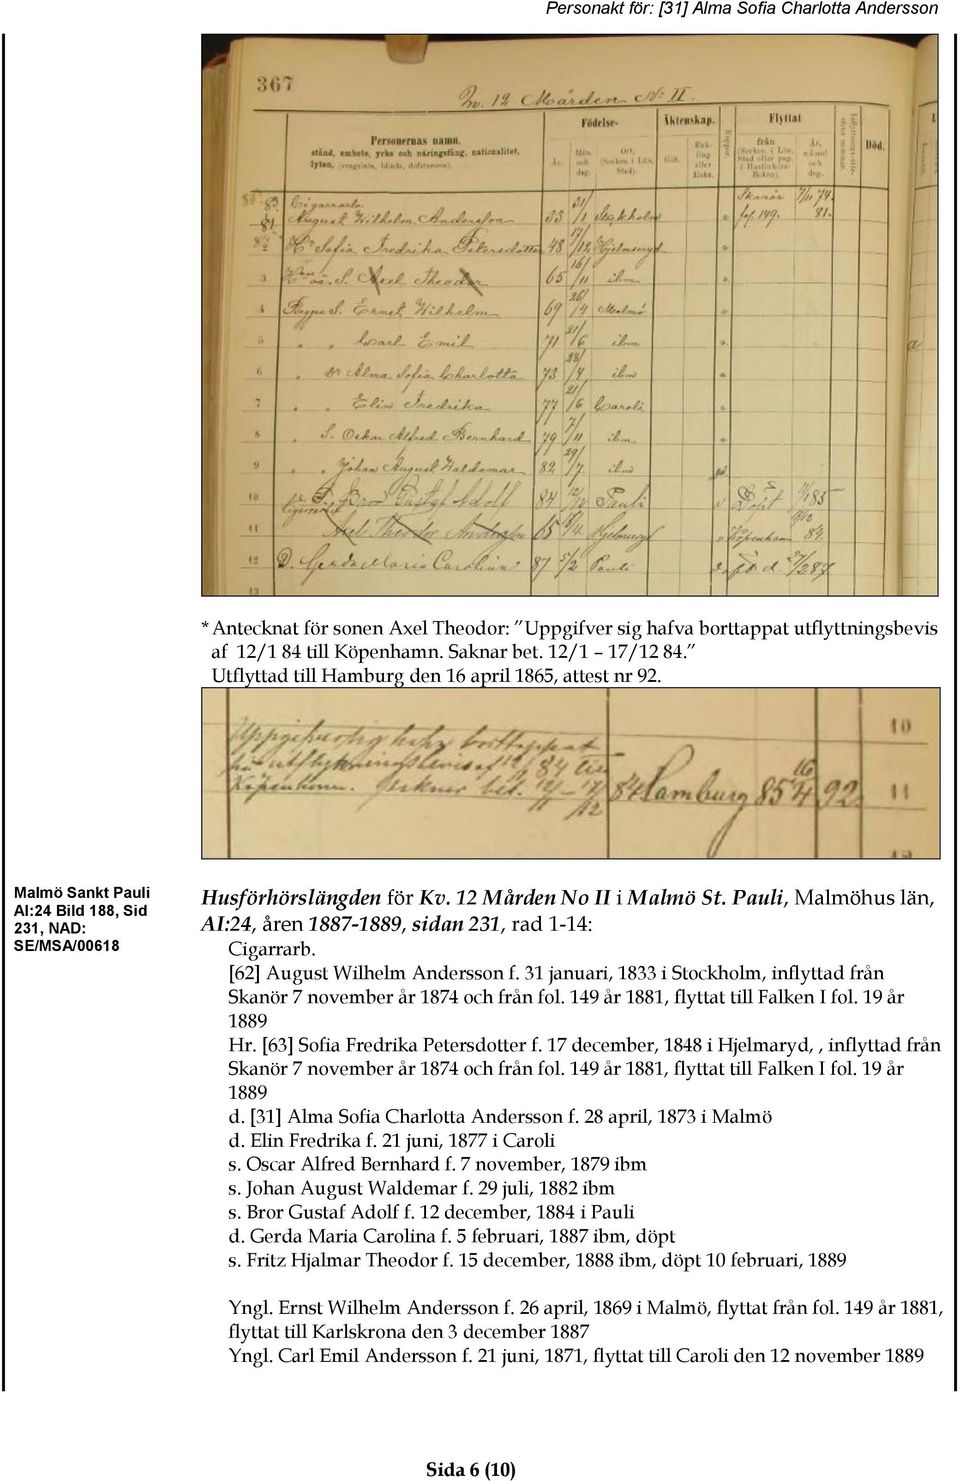 Personakt för: [31] Alma Sofia Charlotta Andersson
367
Kv. 12 Mården No II.
Personernas namn,
stånd, embete, yrke och näringsfång, nationalitet,
lyten, (svagsinta, blinda, döfstumma).
Födelse-
År.
Mån. och dag.
Ort, (Socken i Län, Stad).
Äktenskap.
Gift.
Enk- ling eller Enka.
Koppor.
Flyttat
från (Socken i Län, Stad eller pag. i Husförhörs- Boken).
År, månad och dag.
Död.
80. 83. Cigarrarb. 31/ Skanör 7/11 74.
81. August Wilhelm Andersson 33 /1 Stockholm fol. 149. 81.
Hu Sofia Fredrika Petersdotter 48 17/12 Hjelmseryd
3 S. Axel Theodor 65 16/11 ibm
4 S. Ernst Wilhelm 69 26/4 Malmö
5 " " Carl Emil 71 21/6 ibm a
6 " Dr Alma Sofia Charlotta 73 28/4 ibm
7 " " Elin Fredrika 77 21/6 Caroli
8 " S. Oskar Alfred Bernhard 79 7/11 ibm
9 " " Johan August Valdemar 82 29/7 ibm
10 S. Bror Gustaf Adolf 84 12/12 Pauli Döpt 1/1 85
11 Cigarrarb. Axel Theodor Andersson 65 Hjelmseryd Köpenhamn 84.
12 D. Gerda Maria Carolina 87 5/2 Pauli döpt d. 27/2 87
13
* Antecknat för sonen Axel Theodor: ”Uppgifver sig hafva borttappat utflyttningsbevis
af 12/1 84 till Köpenhamn. Saknar bet. 12/1 – 17/12 84.”
Utflyttad till Hamburg den 16 april 1865, attest nr 92.
Uppgifver sig hafva borttappat
utflyttningsbevis af 12/1 84 till
Köpenhamn. Saknar bet. 12/11 – 17/12 84 Hamburg 85 16/4 92.
10
11
12
Malmö Sankt Pauli
AI:24 Bild 188, Sid
231, NAD:
SE/MSA/00618
Husförhörslängden för Kv. 12 Mården No II i Malmö St. Pauli, Malmöhus län,
AI:24, åren 1887-1889, sidan 231, rad 1-14:
Cigarrarb.
[62] August Wilhelm Andersson f. 31 januari, 1833 i Stockholm, inflyttad från
Skanör 7 november år 1874 och från fol. 149 år 1881, flyttat till Falken I fol. 19 år
1889
Hr. [63] Sofia Fredrika Petersdotter f. 17 december, 1848 i Hjelmaryd, , inflyttad från
Skanör 7 november år 1874 och från fol. 149 år 1881, flyttat till Falken I fol. 19 år
1889
d. [31] Alma Sofia Charlotta Andersson f. 28 april, 1873 i Malmö
d. Elin Fredrika f. 21 juni, 1877 i Caroli
s. Oscar Alfred Bernhard f. 7 november, 1879 ibm
s. Johan August Waldemar f. 29 juli, 1882 ibm
s. Bror Gustaf Adolf f. 12 december, 1884 i Pauli
d. Gerda Maria Carolina f. 5 februari, 1887 ibm, döpt
s. Fritz Hjalmar Theodor f. 15 december, 1888 ibm, döpt 10 februari, 1889
Yngl. Ernst Wilhelm Andersson f. 26 april, 1869 i Malmö, flyttat från fol. 149 år 1881,
flyttat till Karlskrona den 3 december 1887
Yngl. Carl Emil Andersson f. 21 juni, 1871, flyttat till Caroli den 12 november 1889
Sida 6 (10)